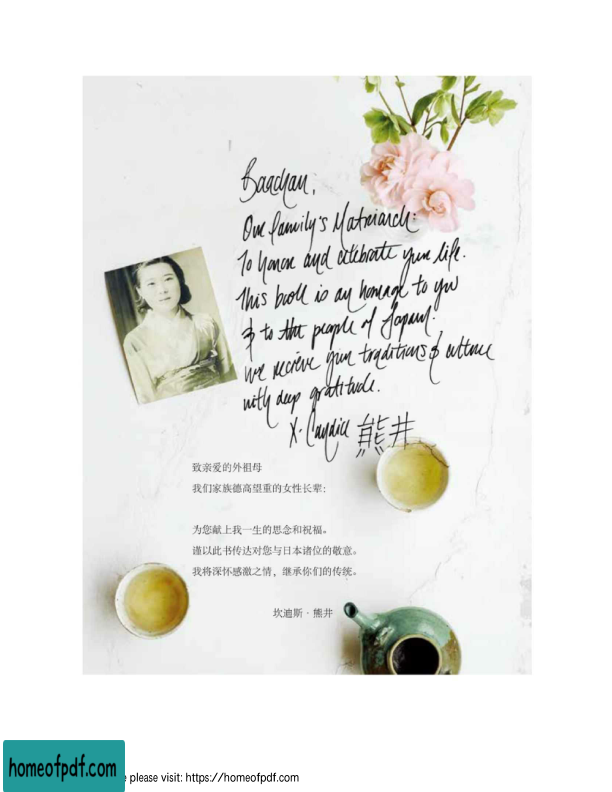 Baachan,
Our family's Matriarch.
To honor and celebrate your life.
This book is an homage to you
& to the people of Japan.
We recieve your traditions & culture
with deep gratitude.
X. Candice 熊井
致亲爱的外祖母
我们家族德高望重的女性长辈：
为您献上我一生的思念和祝福。
谨以此书传达对您与日本诸位的敬意。
我将深怀感激之情，继承你们的传统。
坎迪斯·熊井
homeofpdf.com
please visit: https://homeofpdf.com